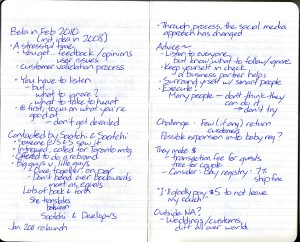 Beta in Feb 2010
(first idea in 2008)
• A stressful time
- You get feedback/opinions
user issues
- customer validation process
- You have to listen
- but...
- what to ignore?
- what to take to heart
• @ first, focus on what you're
good at
- don't get derailed
Contacted by Saatchi & Saatchi
• Someone @ S&S saw it
• Intrigued, called in Toronto mtg
• Offered to do a rebrand
• Big guys v. little guys
- Once together, on par
- Don't bend over backwards
meet as equals
Lots of back & forth
She translates
between
Saatchi & Developers
Jan 2011 relaunch
- Through process, the social media
approach has changed
Advice -
- Listen to everyone
but know what to follow/ignore
- Keep yourself in check
- a business partner helps
- Surround yrself w/ smart people
- Execute!
Many people - don't think they
can do it
- don't try
Challenge: Few (if any) return
customers
Possible expansion into baby reg?
They make $
- transaction fee for guests
free for couple
- Consider: Bay registry: 7%
ship fee
"I'd gladly pay $5 to not leave
my couch"
Outside NA?
- Weddings/customs
diff all over world